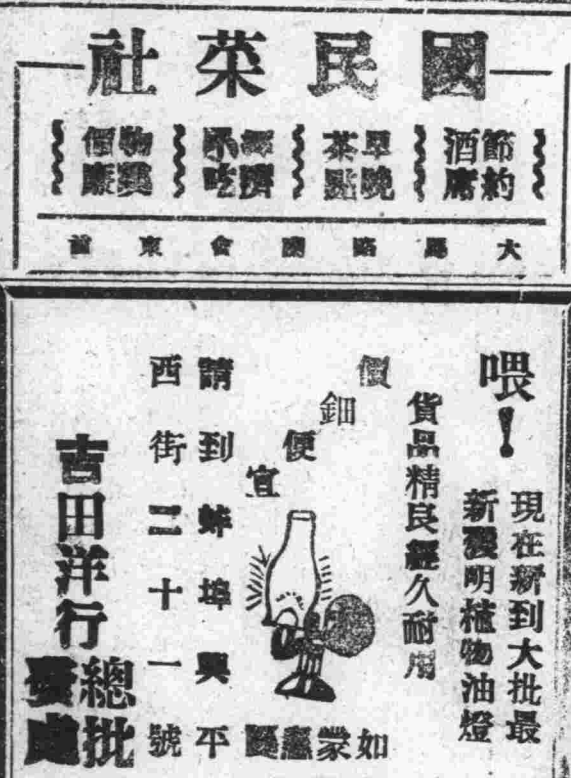 國民菜社
節約酒席
早晚茶點
經濟小吃
物美價廉
大馬路會東首
喂!
現在新到大批最
新發明植物油燈
貨品精良經久耐用
價鈿便宜
如蒙惠顧
請到蚌埠興平
西街二十一號
吉田洋行
總批發處